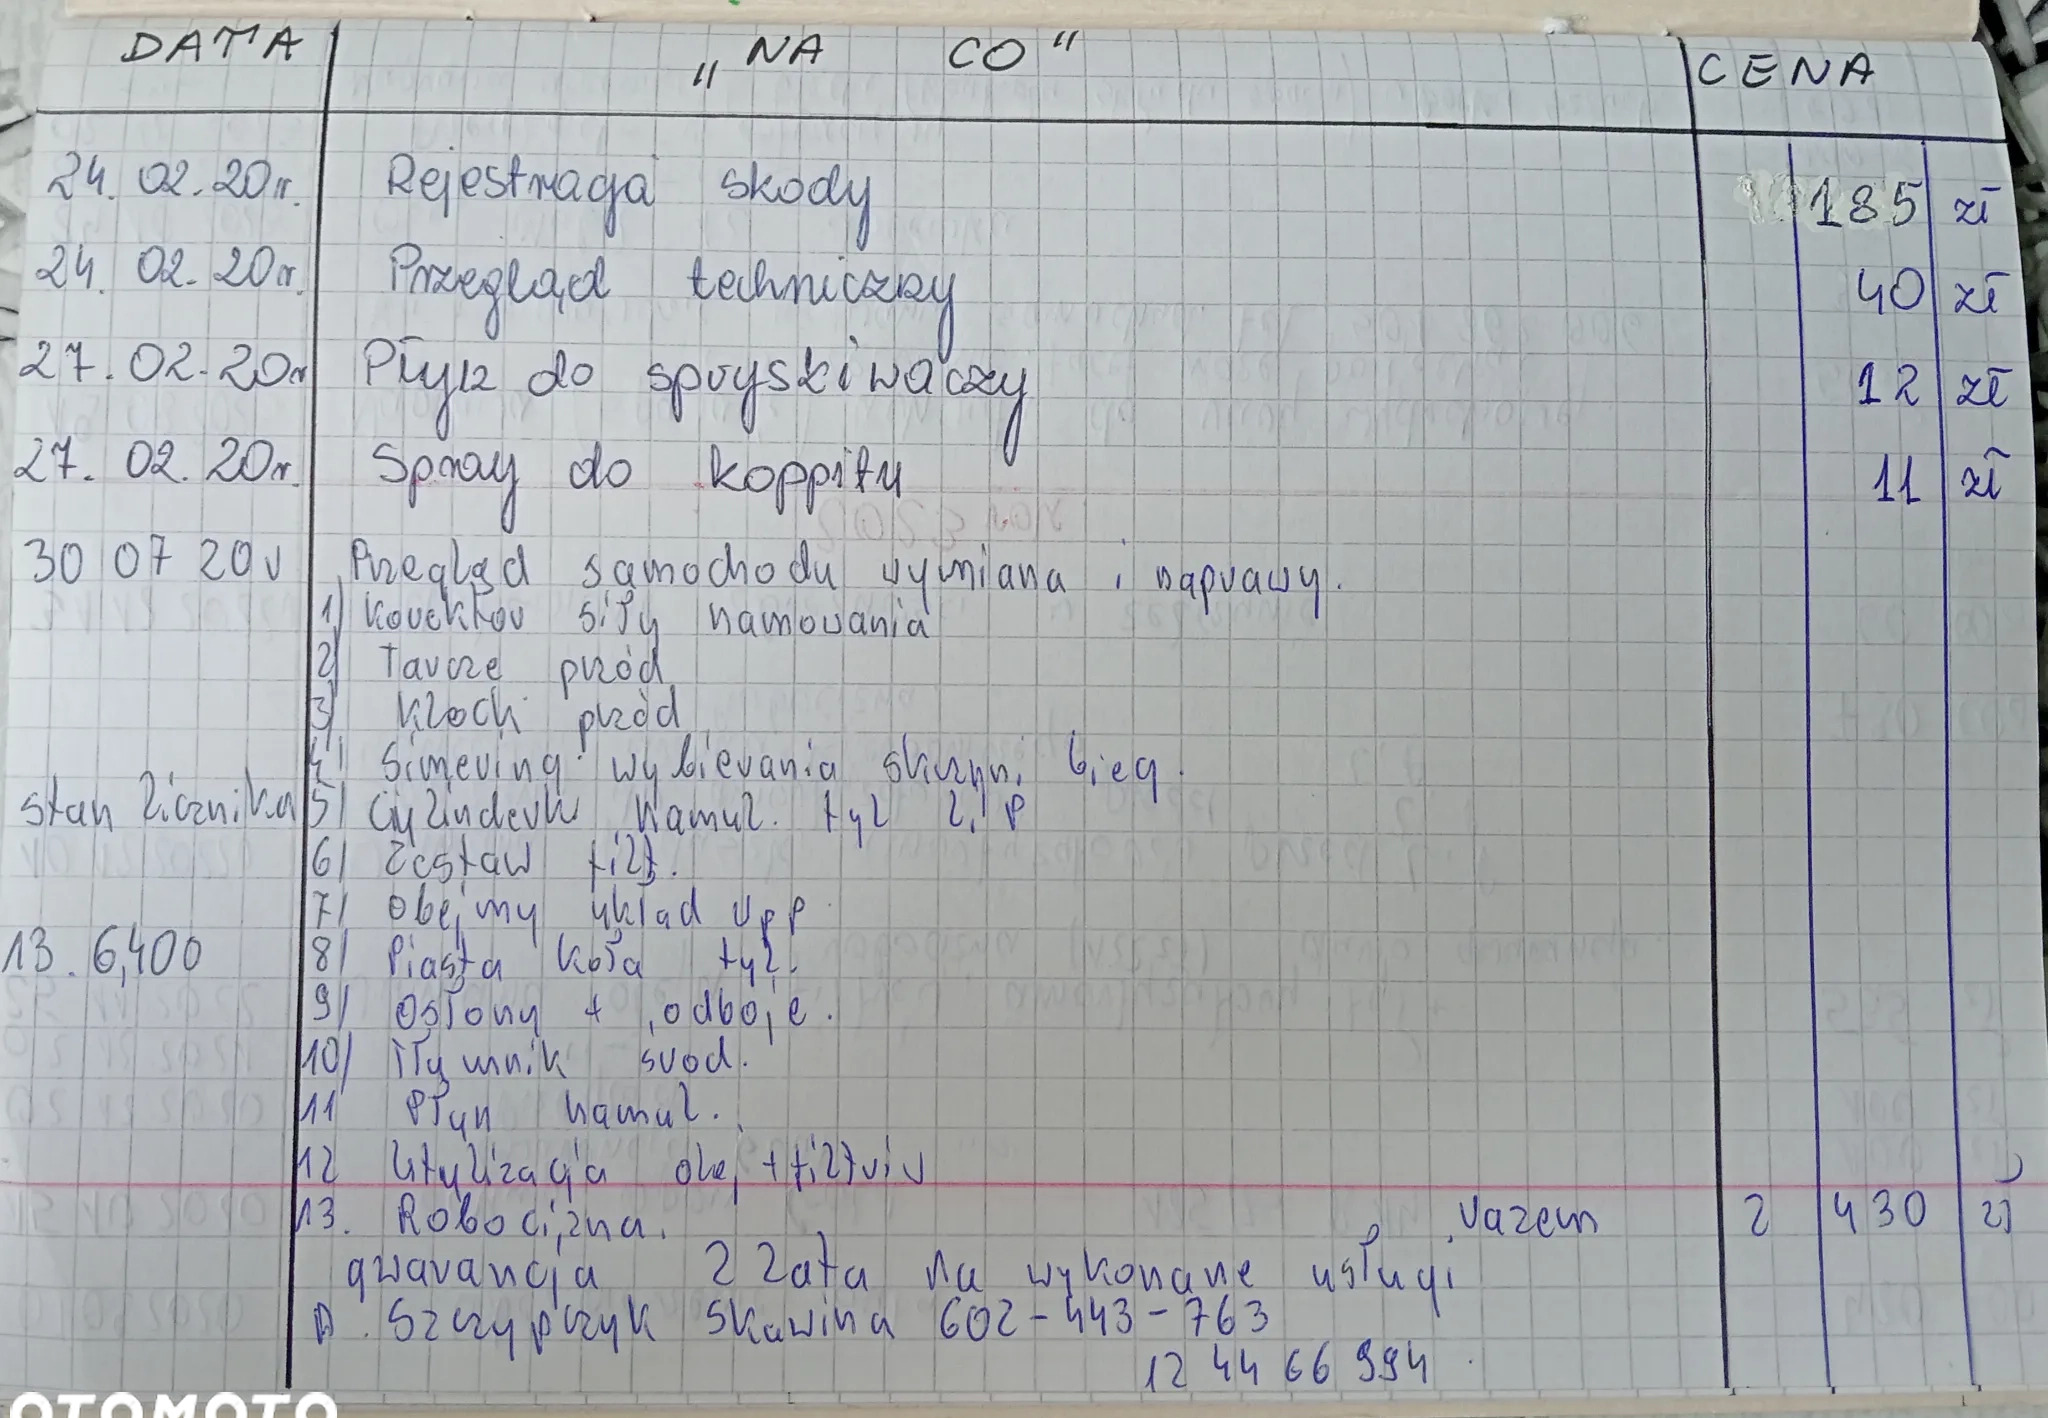 DATA „NA CO" CENA
24. 02. 20r. Rejestracja skody 185 zł
24. 02. 20r. Przegląd techniczny 40 zł
27. 02. 20r Płyn do spryskiwaczy 12 zł
27. 02. 20r. Spray do koppitu 11 zł
30 07 20r Przegląd samochodu wymiana i naprawy.
1) korektor siły hamowania
2) Tarcze przód
3) klocki przód
4) Simering wybierania skrzyni bieg.
stan licznika 5) Cylinderk hamul. tył L i P
6) Zestaw filt.
7) obejmy układ wpp
13. 6,400 8) Piasta koła tył.
9) osłony + odboje.
10) Tłumnik środ.
11 Płyn hamul.
12 Utylizacja olej + filtrów
13. Robocizna. razem 2 430 zł
gwarancja 2 lata na wykonane usługi
A. Szczypczyk Skawina 602-443-763
12 44 66 994
OTOMOTO